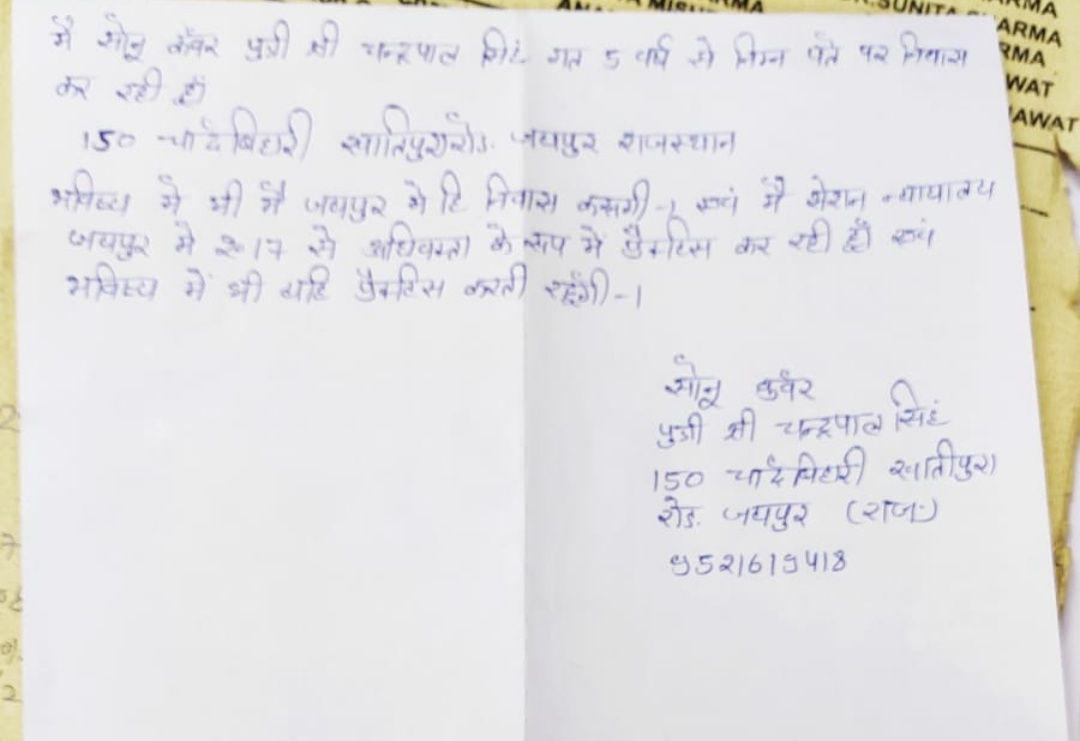 ANA MISH MA
SUNITA SHARMA
ARMA
RMA
WAT
AWAT
मै सोनू कँवर पुत्री श्री चन्द्रपाल सिहं गत 5 वर्ष से निम्न पते पर निवास
कर रही हूँ
150 चादँबिहारी खातिपुरा रोड. जयपुर राजस्थान
भविष्य मे भी मैं जयपुर मे हि निवास करूगी-। एवं मै शेसन न्यायालय
जयपुर मे 2017 से अधिवक्ता के रूप में प्रैक्टिस कर रही हूँ एवं
भविष्य में भी यहि प्रैक्टिस करती रहूँगी-।
सोनू कवँर
पुत्री श्री चन्द्रपाल सिहं
150 चादँबिहारी खातीपुरा
रोड. जयपुर (राज॰)
9521619418